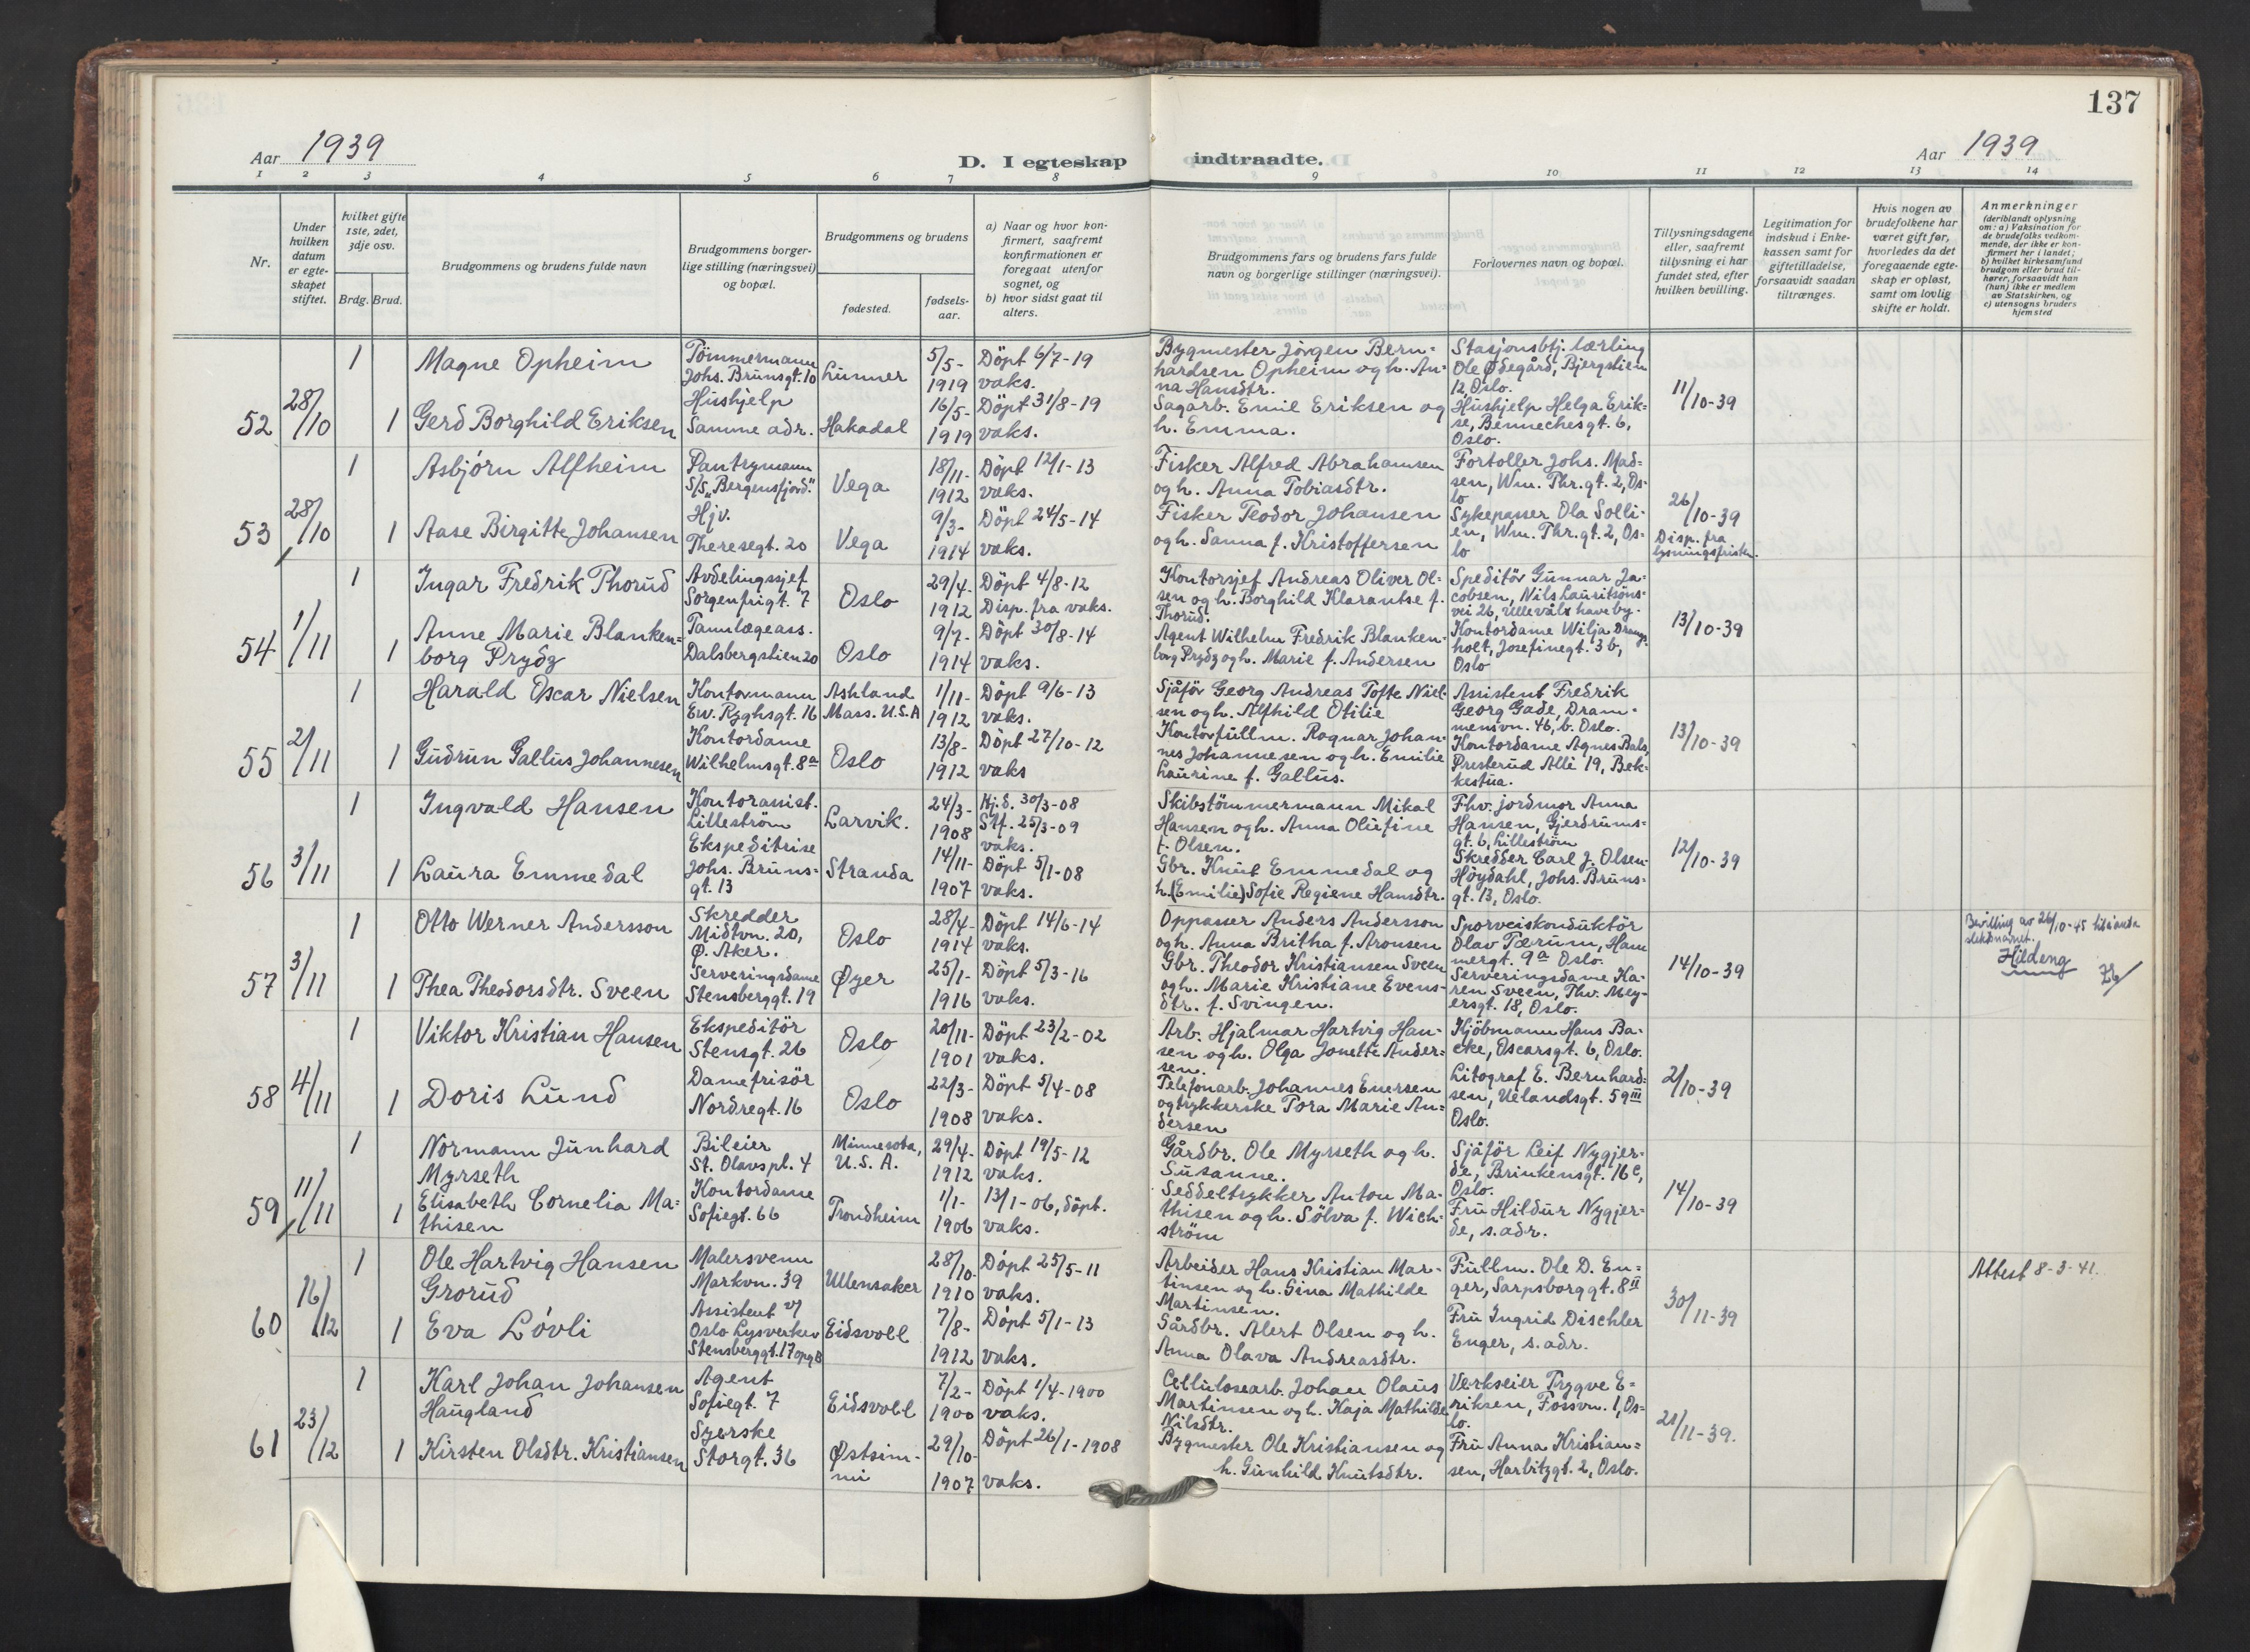 137
Aar 1939
D. I egteskap indtraadte.
Aar 1939
1 2 3 4 5 6 7 8 9 10 11 12 13 14
Nr.
Under hvilken datum er egteskapet stiftet.
hvilket gifte 1ste, 2det, 3dje osv.
Brdg. Brud.
Brudgommens og brudens fulde navn
Brudgommens borgerlige stilling (næringsvei) og bopæl.
Brudgommens og brudens
fødested.
fødselsaar.
a) Naar og hvor konfirmert, saafremt konfirmationen er foregaat utenfor sognet, og
b) hvor sidst gaat til alters.
Brudgommens fars og brudens fars fulde navn og borgerlige stillinger (næringsvei).
Forlovernes navn og bopæl.
Tillysningsdagene eller, saafremt tillysning ei har fundet sted, efter hvilken bevilling.
Legitimation for indskud i Enkekassen samt for giftetilladelse, forsaavidt saadan tiltrænges.
Hvis nogen av brudefolkene har været gift før, hvorledes da det foregaaende egteskap er opløst, samt om lovlig skifte er holdt.
Anmerkninger
(deriblandt oplysning om: a) Vaksination for de brudefolks vedkommende, der ikke er konfirmert her i landet;
b) hvilket kirkesamfund brudgom eller brud tilhører, forsaavidt han (hun) ikke er medlem av Statskirken, og
c) utensogns bruders hjemsted
52 28/10 1 Magne Opheim Tömmermann Johs. Brunsgt. 10 Lunner 5/5-1919 Döpt 6/7-19 vaks. Bygmester Jörgen Bernhardsen Opheim og h. Anna Hansdtr. Stasjonsbtj. lærling Ole Ødegård, Bjergstien 12, Oslo. 11/10-39
1 Gerd Borghild Eriksen Hushjelp Samme adr. Hakadal 16/5-1919 Döpt 31/8-19 vaks. Sagarb. Emil Eriksen og h. Emma. Hushjelp Helga Erikse, Bennechesgt. 6, Oslo.
53 28/10 1 Asbjörn Alfheim Pantrymann S/S „Bergensfjord." Vega 18/11-1912 Döpt 12/1-13 vaks. Fisker Alfred Abrahamsen og h. Anna Tobiasdtr. Fortoller Johs. Madsen, Wm. Thr.gt. 2, Oslo 26/10-39 Disp. fra lysningsfristen.
1 Aase Birgitte Johansen Hjv. Theresegt. 20 Vega 9/3-1914 Döpt 24/5-14 vaks. Fisker Teodor Johansen og h. Sanna f. Kristoffersen Sykepasser Ola Sollien, Wm. Thr.gt. 2, Oslo
54 1/11 1 Ingar Fredrik Thorud Avdelingssjef Sorgenfrigt. 7 Oslo 29/4-1912 Döpt 4/8-12 Disp. fra vaks. Kontorsjef Andreas Oliver Olsen og h. Borghild Klarantse f. Thorud. Speditör Gunnar Jacobsen, Nils Lauritsöns-vei 26, Ullevåls haveby. 13/10-39
1 Anne Marie Blankenborg Prydz Tannlægeass. Dalsbergstien 20 Oslo 9/7-1914 Döpt 30/8-14 vaks. Agent Wilhelm Fredrik Blankenborg Prydz og h. Marie f. Andersen Kontordame Wilja Drangsholt, Josefinegt. 3 b, Oslo
55 2/11 1 Harald Oscar Nielsen Kontormann Ew. Ryghsgt. 16 Ashland Mass. U.S.A 1/11-1912 Döpt 9/6-13 vaks. Sjåför Georg Andreas Tofte Nielsen og h. Alfhild Otilie Assistent Fredrik Georg Gade, Drammensvn. 46, b. Oslo. 13/10-39
1 Gudrun Gallus Johannesen Kontordame Wilhelmsgt. 8a Oslo 13/8-1912 Döpt 27/10-12 vaks Kontorfullm. Ragnar Johannes Johannesen og h. Emilie Laurine f. Gallus. Kontordame Agnes Bals, Presterud Allé 19, Bekkestua.
56 3/11 1 Ingvald Hansen Kontorassist. Lilleström Larvik. 24/3-1908 Hj.d. 30/3-08 Stf. 25/3-09 vaks. Skibstömmermann Mikal Hansen og h. Anna Olufine f. Olsen. Fhv. jordmor Anna Hansen, Gjerdrumsgt. 6, Lilleström 12/10-39
1 Laura Emmedal Ekspeditrise Johs. Brunsgt. 13 Stranda 14/11-1907 Döpt 5/1-08 vaks. Gbr. Knut Emmedal og h. (Emilie) Sofie Regiene Hansdtr. Skredder Carl J. Olsen-Höydahl, Johs. Brunsgt. 13, Oslo.
57 3/11 1 Otto Werner Andersson Skredder Midtvn. 20, Ø. Aker. Oslo 28/4-1914 Döpt 14/6-14 vaks. Oppasser Anders Andersson og h. Anna Britha f. Aronsen Sporveiskonduktör Olav Tærum, Hammergt. 9a Oslo. 14/10-39 Bevilling av 26/10-45 til å anta slektsnavnet: Hildeng
1 Thea Theodorsdtr. Sveen Serveringsdame Stensberggt. 19 Øyer 25/1-1916 Döpt 5/3-16 vaks. Gbr. Theodor Kristiansen Sveen og h. Marie Kristiane Evensdtr. f. Svingen. Serveringsdame Karen Sveen, Thv. Meyersgt. 18, Oslo.
58 4/11 1 Viktor Kristian Hansen Ekspeditör Stensgt. 26 Oslo 20/11-1901 Döpt 23/2-02 vaks. Arb. Hjalmar Hartvig Hansen og h. Olga Jonette Andersen. Kjöbmann Hans Backe, Oscarsgt. 6, Oslo. 2/10-39
1 Doris Lund Damefrisör Nordregt. 16 Oslo 22/3-1908 Döpt 5/4-08 vaks. Telefonarb. Johannes Enersen og trykkerske Tora Marie Andersen Litograf E. Bernhardsen, Uelandsgt. 59 III Oslo.
59 11/11 1 Normann Junhard Myrseth Bileier St. Olavspl. 4 Minnesota, U.S.A. 29/4-1912 Döpt 19/5-12 vaks. Gårdbr. Ole Myrseth og h. Susanne. Sjåför Leif Nygjerde, Brinkensgt. 16c, Oslo. 14/10-39
1 Elisabeth Cornelia Mathisen Kontordame Sofiegt. 66 Trondheim 1/1-1906 13/1-06, döpt. vaks. Seddeltrykker Anton Mathisen og h. Sölva f. Wichström Fru Hildur Nygjerde, s. adr.
60 16/12 1 Ole Hartvig Hansen Grorud Malersvenn Markvn. 39 Ullensaker 28/10-1910 Döpt 25/5-11 vaks. Arbeider Hans Kristian Martinsen og h. Gina Mathilde Martinsen. Fullm. Ole D. Enger, Sarpsborggt. 8 II 30/11-39 Attest 8-3-41.
1 Eva Lövli Assistent v/ Oslo Lysverker Stensberggt. 17 opg B Eidsvoll 7/8-1912 Döpt 5/1-13 vaks. Gårdbr. Alert Olsen og h. Anna Olava Andreasdtr. Fru Ingrid Dischler Enger, s. adr.
61 23/12 1 Karl Johan Johansen Haugland Agent Sofiegt. 7 Eidsvoll 7/2-1900 Döpt 1/4-1900 vaks. Cellulosearb. Johan Olaus Martinsen og h. Kaja Mathilde Nilsdtr. Verkseier Trygve Eriksen, Fossvn. 1, Oslo. 21/11-39.
1 Kirsten Olsdtr. Kristiansen Syerske Storgt. 36 Østsinni 29/10-1907 Döpt 26/1-1908 vaks. Bygmester Ole Kristiansen og h. Gunhild Knutsdtr. Fru Anna Kristiansen, Harbitzgt. 2, Oslo.